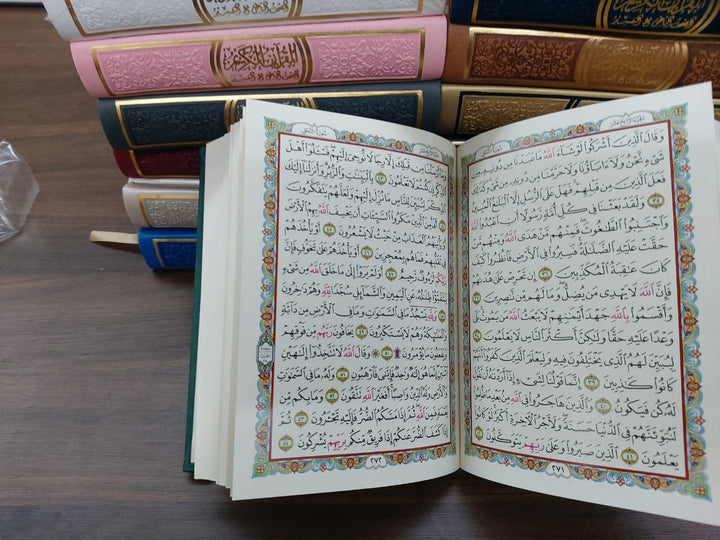 القرآن الكريم
القرآن الكريم
الجزء الرابع عشر
وَقَالَ الَّذِينَ أَشْرَكُوا لَوْ شَاءَ اللَّهُ مَا عَبَدْنَا مِن دُونِهِ مِن
شَيْءٍ نَّحْنُ وَلَا ءَابَاؤُنَا وَلَا حَرَّمْنَا مِن دُونِهِ مِن شَيْءٍ كَذَٰلِكَ
فَعَلَ الَّذِينَ مِن قَبْلِهِمْ فَهَلْ عَلَى الرُّسُلِ إِلَّا الْبَلَاغُ الْمُبِينُ
٣٥ وَلَقَدْ بَعَثْنَا فِي كُلِّ أُمَّةٍ رَّسُولًا أَنِ اعْبُدُوا اللَّهَ
وَاجْتَنِبُوا الطَّاغُوتَ فَمِنْهُم مَّنْ هَدَى اللَّهُ وَمِنْهُم مَّنْ
حَقَّتْ عَلَيْهِ الضَّلَالَةُ فَسِيرُوا فِي الْأَرْضِ فَانظُرُوا كَيْفَ
كَانَ عَاقِبَةُ الْمُكَذِّبِينَ ٣٦ إِن تَحْرِصْ عَلَىٰ هُدَاهُمْ
فَإِنَّ اللَّهَ لَا يَهْدِي مَن يُضِلُّ وَمَا لَهُم مِّن نَّاصِرِينَ ٣٧
وَأَقْسَمُوا بِاللَّهِ جَهْدَ أَيْمَانِهِمْ لَا يَبْعَثُ اللَّهُ مَن يَمُوتُ بَلَىٰ
وَعْدًا عَلَيْهِ حَقًّا وَلَٰكِنَّ أَكْثَرَ النَّاسِ لَا يَعْلَمُونَ ٣٨
لِيُبَيِّنَ لَهُمُ الَّذِي يَخْتَلِفُونَ فِيهِ وَلِيَعْلَمَ الَّذِينَ كَفَرُوا أَنَّهُمْ
كَانُوا كَاذِبِينَ ٣٩ إِنَّمَا قَوْلُنَا لِشَيْءٍ إِذَا أَرَدْنَاهُ أَن نَّقُولَ
لَهُ كُن فَيَكُونُ ٤٠ وَالَّذِينَ هَاجَرُوا فِي اللَّهِ مِن بَعْدِ مَا ظُلِمُوا
لَنُبَوِّئَنَّهُمْ فِي الدُّنْيَا حَسَنَةً وَلَأَجْرُ الْآخِرَةِ أَكْبَرُ لَوْ كَانُوا
يَعْلَمُونَ ٤١ الَّذِينَ صَبَرُوا وَعَلَىٰ رَبِّهِمْ يَتَوَكَّلُونَ ٤٢
٢٧١
سورة النحل
وَمَا أَرْسَلْنَا مِن قَبْلِكَ إِلَّا رِجَالًا نُّوحِي إِلَيْهِمْ فَاسْأَلُوا أَهْلَ
الذِّكْرِ إِن كُنتُمْ لَا تَعْلَمُونَ ٤٣ بِالْبَيِّنَاتِ وَالزُّبُرِ وَأَنزَلْنَا إِلَيْكَ
الذِّكْرَ لِتُبَيِّنَ لِلنَّاسِ مَا نُزِّلَ إِلَيْهِمْ وَلَعَلَّهُمْ يَتَفَكَّرُونَ
٤٤ أَفَأَمِنَ الَّذِينَ مَكَرُوا السَّيِّئَاتِ أَن يَخْسِفَ اللَّهُ بِهِمُ الْأَرْضَ
أَوْ يَأْتِيَهُمُ الْعَذَابُ مِنْ حَيْثُ لَا يَشْعُرُونَ ٤٥ أَوْ يَأْخُذَهُمْ
فِي تَقَلُّبِهِمْ فَمَا هُم بِمُعْجِزِينَ ٤٦ أَوْ يَأْخُذَهُمْ عَلَىٰ تَخَوُّفٍ فَإِنَّ
رَبَّكُمْ لَرَءُوفٌ رَّحِيمٌ ٤٧ أَوَلَمْ يَرَوْا إِلَىٰ مَا خَلَقَ اللَّهُ مِن شَيْءٍ
يَتَفَيَّأُ ظِلَالُهُ عَنِ الْيَمِينِ وَالشَّمَائِلِ سُجَّدًا لِّلَّهِ وَهُمْ دَاخِرُونَ
٤٨ وَلِلَّهِ يَسْجُدُ مَا فِي السَّمَاوَاتِ وَمَا فِي الْأَرْضِ مِن دَابَّةٍ
وَالْمَلَائِكَةُ وَهُمْ لَا يَسْتَكْبِرُونَ ٤٩ يَخَافُونَ رَبَّهُم مِّن فَوْقِهِمْ
وَيَفْعَلُونَ مَا يُؤْمَرُونَ ۩ ٥٠ ۞ وَقَالَ اللَّهُ لَا تَتَّخِذُوا إِلَٰهَيْنِ
اثْنَيْنِ إِنَّمَا هُوَ إِلَٰهٌ وَاحِدٌ فَإِيَّايَ فَارْهَبُونِ ٥١ وَلَهُ مَا فِي السَّمَاوَاتِ
وَالْأَرْضِ وَلَهُ الدِّينُ وَاصِبًا أَفَغَيْرَ اللَّهِ تَتَّقُونَ ٥٢ وَمَا بِكُم مِّن
نِّعْمَةٍ فَمِنَ اللَّهِ ثُمَّ إِذَا مَسَّكُمُ الضُّرُّ فَإِلَيْهِ تَجْأَرُونَ ٥٣ ثُمَّ
إِذَا كَشَفَ الضُّرَّ عَنكُمْ إِذَا فَرِيقٌ مِّنكُم بِرَبِّهِمْ يُشْرِكُونَ ٥٤
٢٧٢